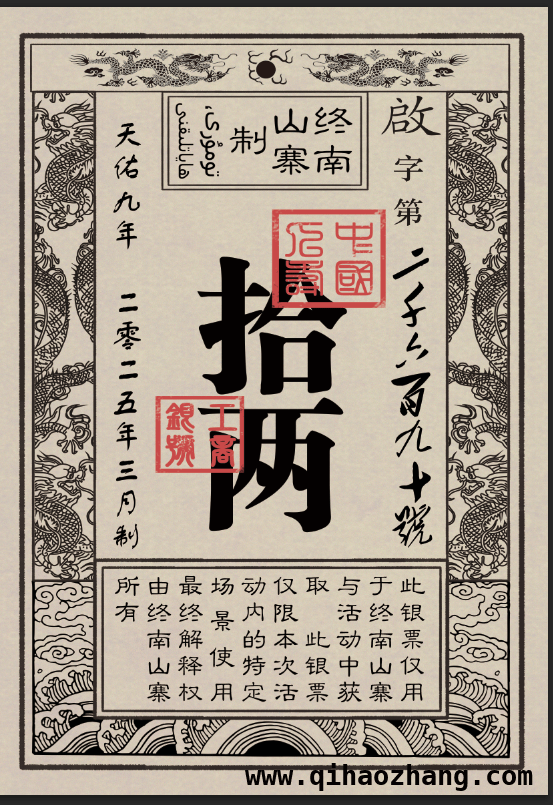 啟字第二千六百九十號
终南
山寨
制
中國
工商
拾两
天佑九年 二零二五年三月制
此银票仅用
于终南山寨
与活动中获
取 此银票
仅限本次活
动内的特定
场景使用
最终解释权
由终南山寨
所有
www.qihaozhang.com